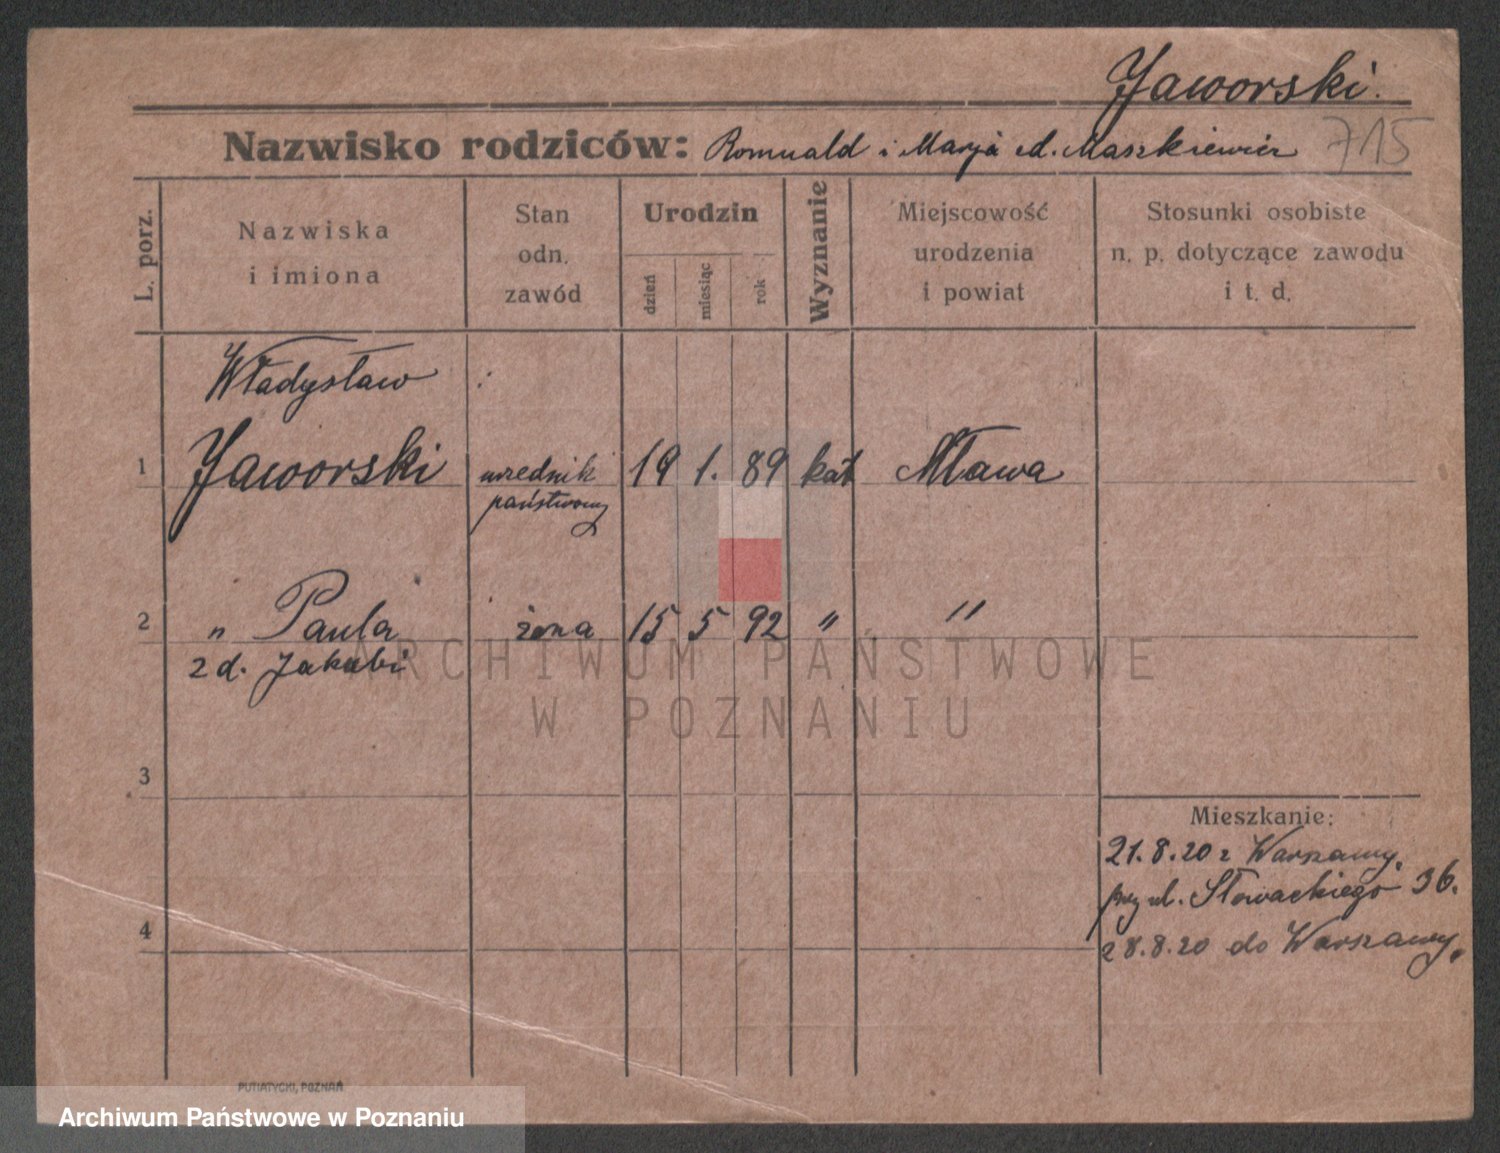 Jaworski.
Nazwisko rodziców: Romuald i Marja z d. Maszkiewicz
715
L. porz.
Nazwiska
i imiona
Stan
odn.
zawód
Urodzin
dzień
miesiąc
rok
Wyznanie
Miejscowość
urodzenia
i powiat
Stosunki osobiste
n. p. dotyczące zawodu
i t. d.
Władysław
1 Jaworski urzednik 19 1. 89 kat Mława
państwowy
2 " Paula żona 15 5 92 " "
z d. Jakubi
ARCHIWUM PAŃSTWOWE
W POZNANIU
3
Mieszkanie:
21.8.20 z Warszawy,
przy ul. Słowackiego 36.
4
28.8.20 do Warszawy.
PUTIATYCKI, POZNAŃ
Archiwum Państwowe w Poznaniu